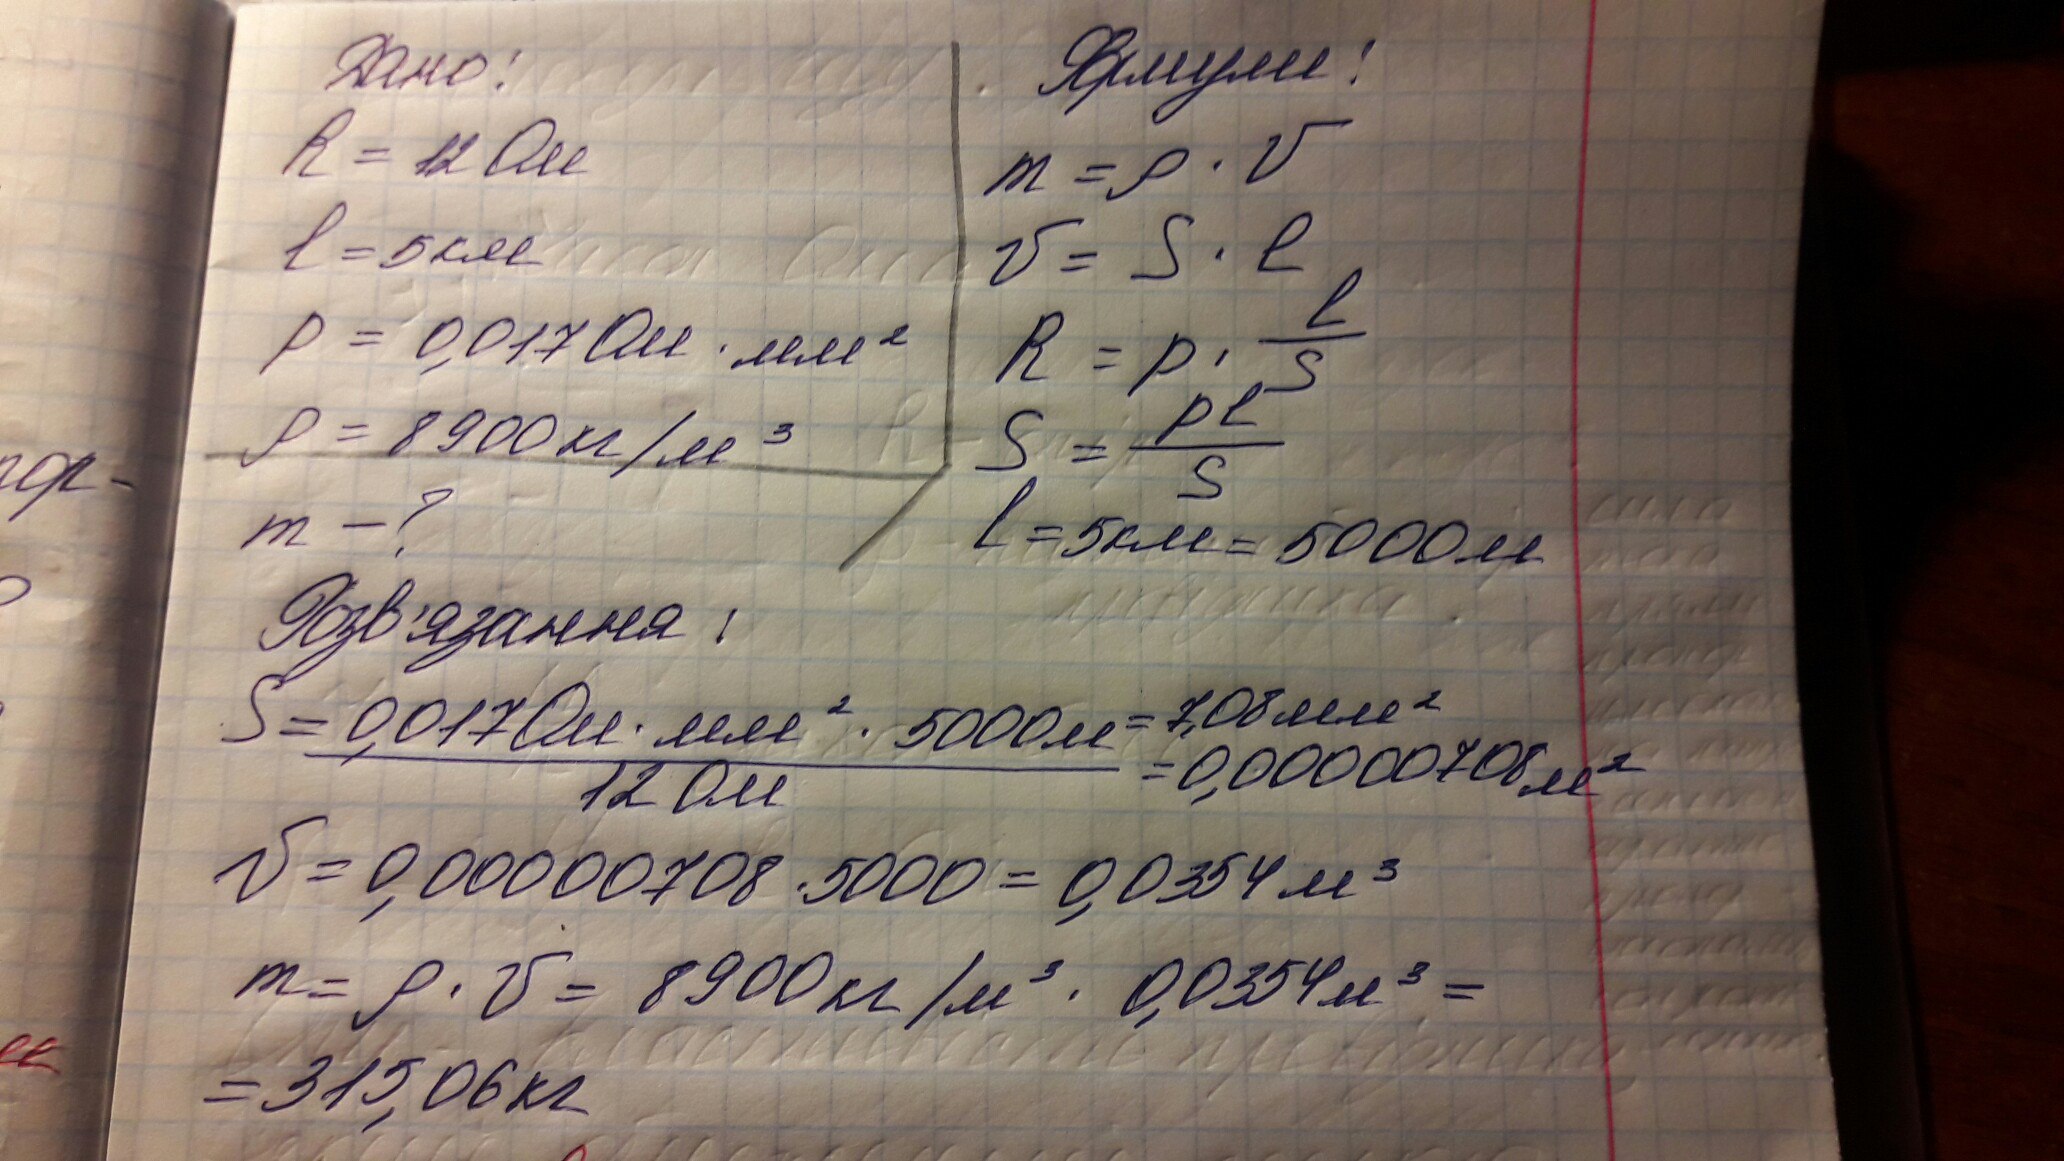 Дано:
R = 12 Ом
l = 5 км
ρ = 0,017 Ом · мм²
ρ = 8900 кг/м³
m – ?
Формули:
m = ρ · V
V = S · l
R = ρ · l/S
S = ρl/S
l = 5 км = 5000 м
Розв'язання:
S = 0,017 Ом · мм² · 5000 м / 12 Ом = 7,08 мм²
= 0,00000708 м²
V = 0,00000708 · 5000 = 0,0354 м³
m = ρ · V = 8900 кг/м³ · 0,0354 м³ =
= 315,06 кг